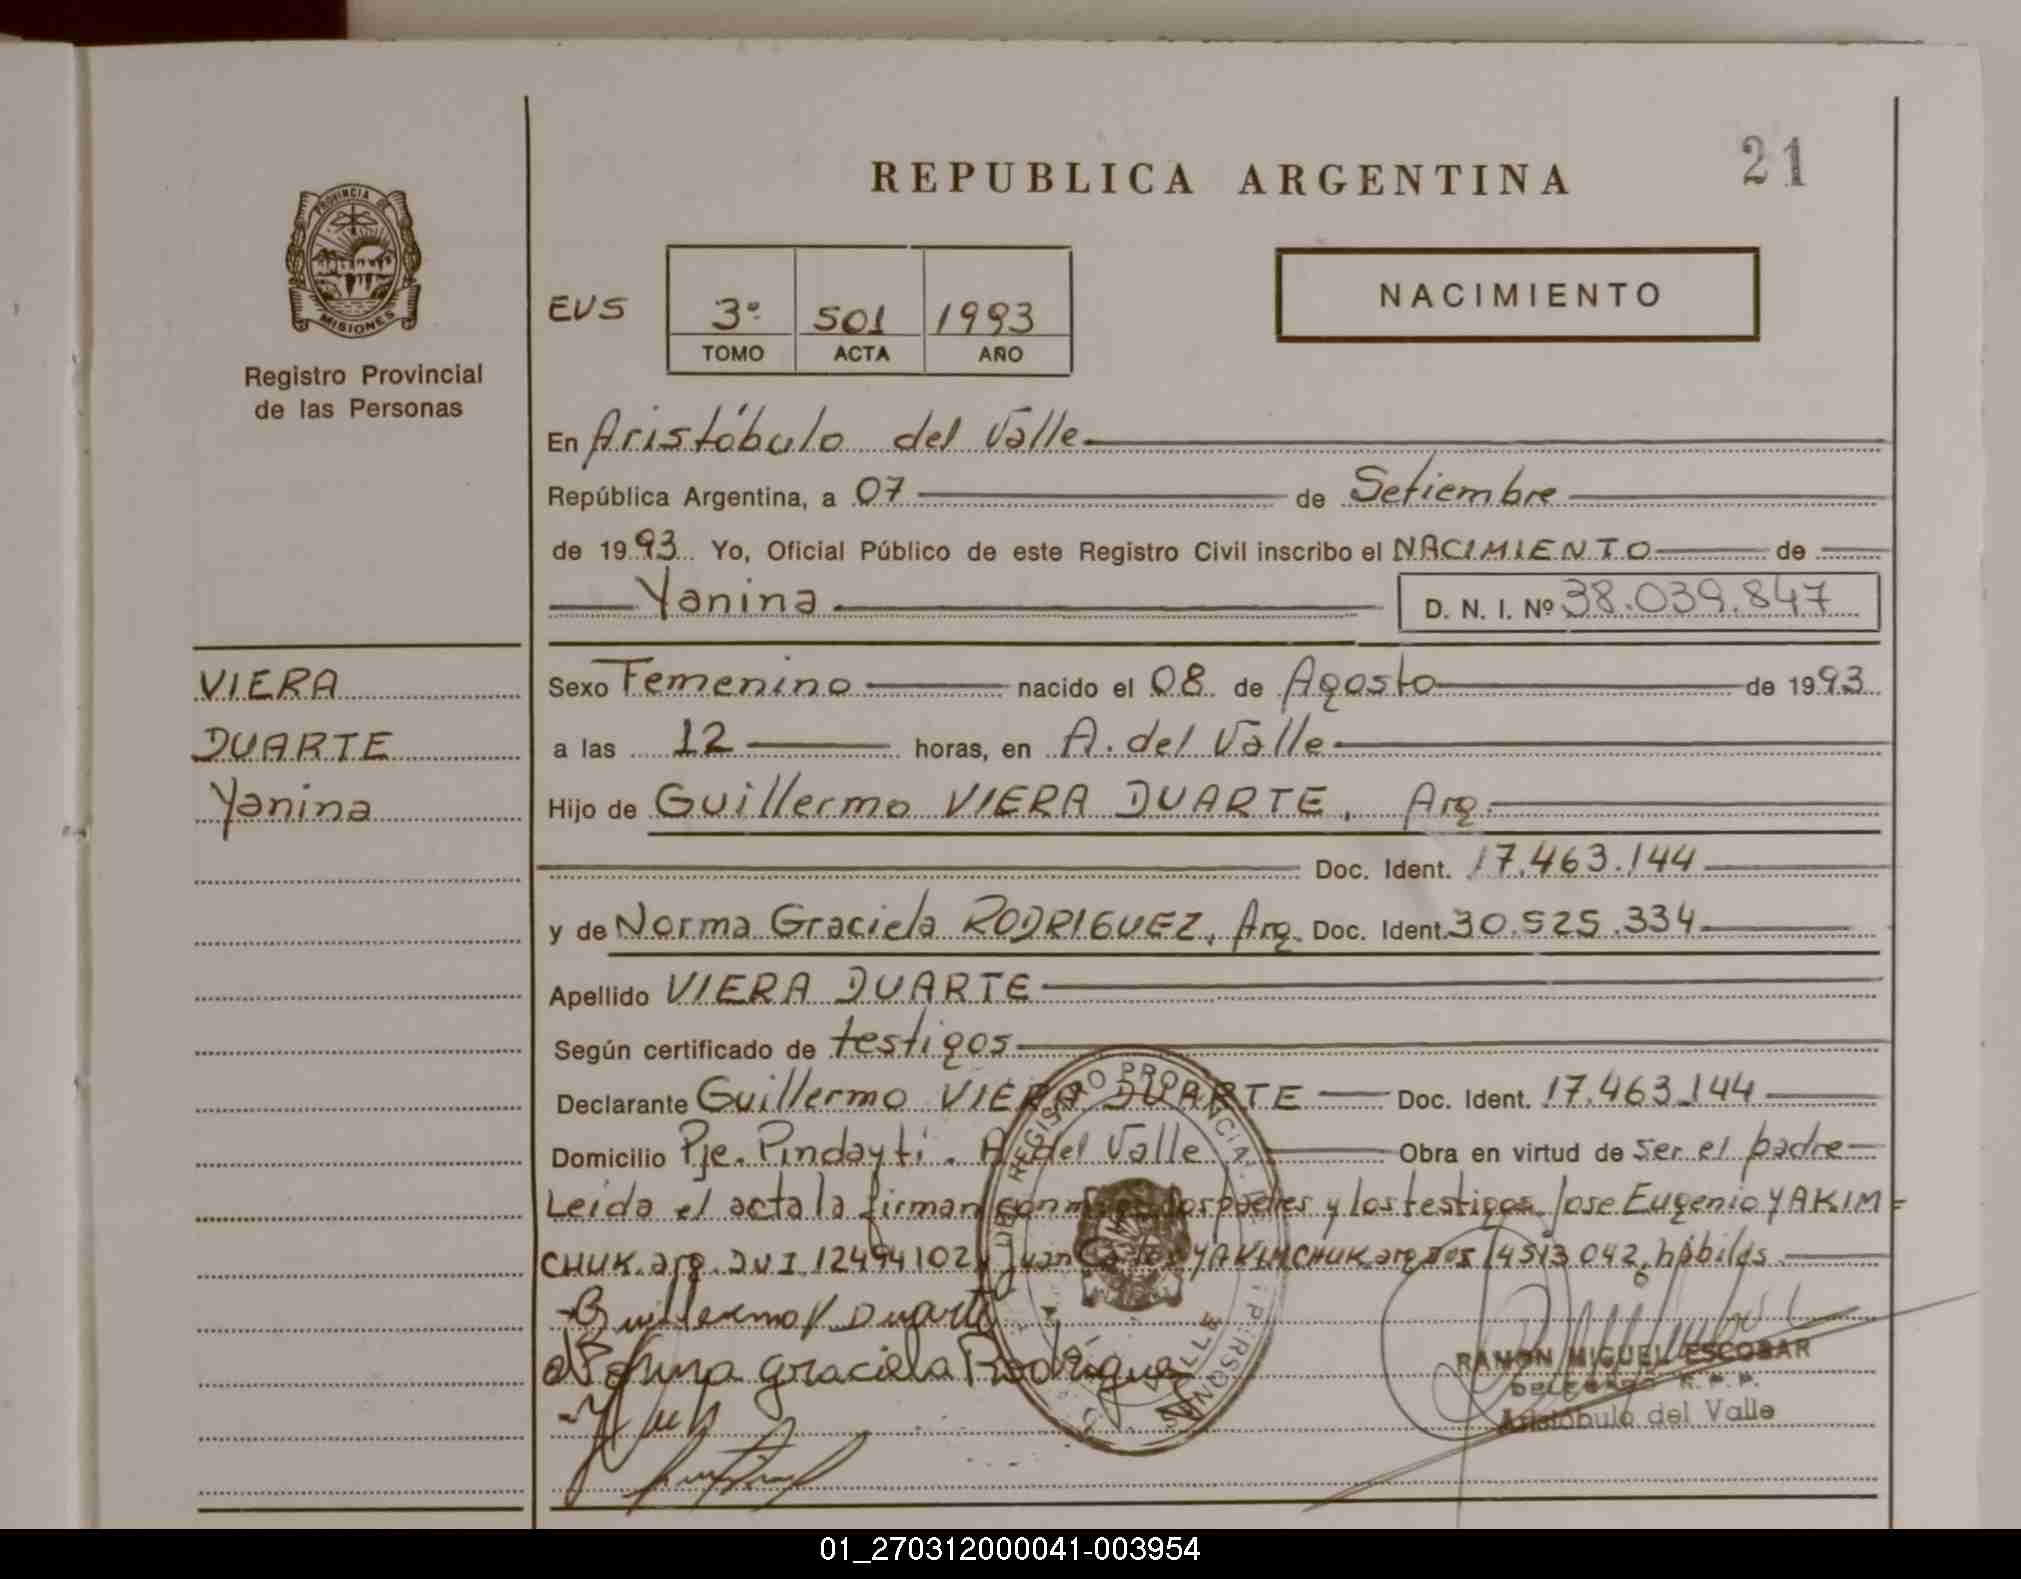 21
REPUBLICA ARGENTINA
PROVINCIA DE
MISIONES
Registro Provincial
de las Personas
NACIMIENTO
EVS 3º 501 1993
TOMO ACTA AÑO
En Aristóbulo del Valle
República Argentina, a 07 de Setiembre
de 1993 Yo, Oficial Público de este Registro Civil inscribo el NACIMIENTO de
Yanina D. N. I. Nº 38.039.847
VIERA
DUARTE
Yanina
Sexo Femenino nacido el 08 de Agosto de 1993
a las 12 horas, en A. del Valle
Hijo de Guillermo VIERA DUARTE, Arg.
Doc. Ident. 17.463.144
y de Norma Graciela RODRIGUEZ, Arg. Doc. Ident. 30.525.334
Apellido VIERA DUARTE
Según certificado de testigos
Declarante Guillermo VIERA DUARTE Doc. Ident. 17.463.144
Domicilio Pje. Pindayti. A. del Valle Obra en virtud de ser el padre
Leida el acta la firman los padres y los testigos Jose Eugenio YAKIM=
CHUK. arg. DNI 12494102 y Juan YAKIMCHUK arg 14513042, hábiles.
Guillermo V Duarte
Norma graciela Rodrigue
RAMON MIGUEL ESCOBAR
DELEGADO R.P.P.
Aristóbulo del Valle
01_270312000041-003954